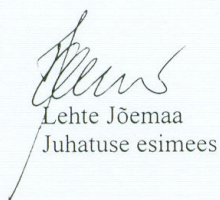 Lehte Jõemaa
Juhatuse esimees